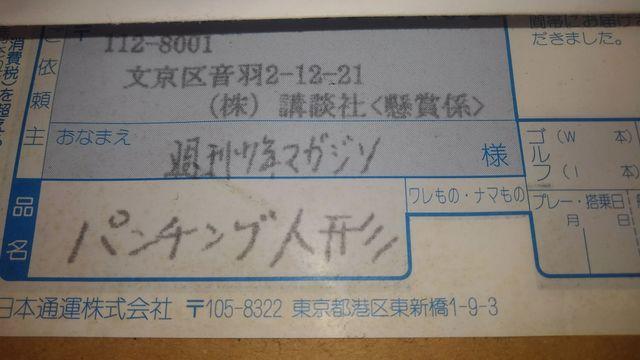 消費税)を超え
ご依頼主
〒
112-8001
文京区音羽2-12-21
(株) 講談社<懸賞係>
おなまえ
週刊少年マガジン
様
品名
パンチング人形
ワレもの・ナマもの
だきました。
ゴルフ
(W 本)
(I 本)
プレー・搭乗日
月 日
日本通運株式会社 〒105-8322 東京都港区東新橋1-9-3